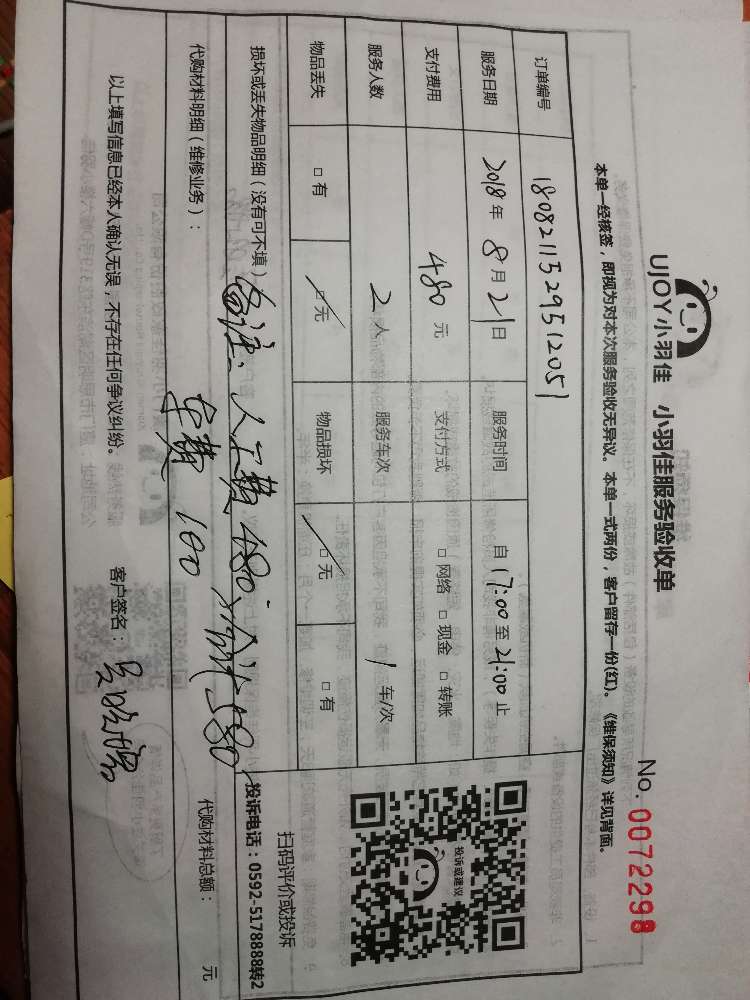 UJOY小羽佳 小羽佳服务验收单
No. 0072298
本单一经核签，即视为对本次服务验收无异议。本单一式两份，客户留存一份(红)。《维保须知》详见背面。
订单编号 1808211529512051
服务日期 2018年8月21日 服务时间 自17:00至21:00止
支付费用 480元 支付方式 □网络 □现金 □转账
服务人数 2人 服务车次 1车/次
物品丢失 □有 □无 物品损坏 □无 □有
投诉或建议
扫码评价或投诉
投诉电话：0592-5178888转2
损坏或丢失物品明细（没有可不填）
备注：人工费480，合计580
车费 100
代购材料明细（维修业务）： 代购材料总额： 元
以上填写信息已经本人确认无误，不存在任何争议纠纷。 客户签名：